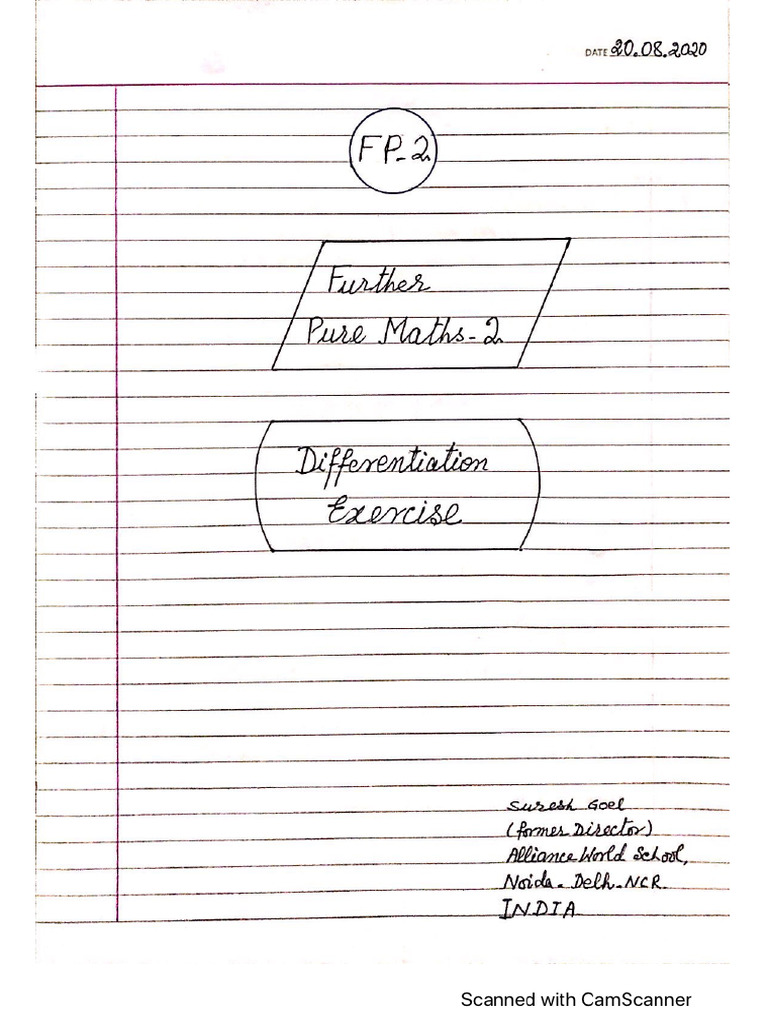 DATE 20.08.2020
FP-2
Further
Pure Maths-2
Differentiation
Exercise
Suresh Goel
(former Director)
Alliance World School,
Noida. Delh.NCR.
INDIA
Scanned with CamScanner